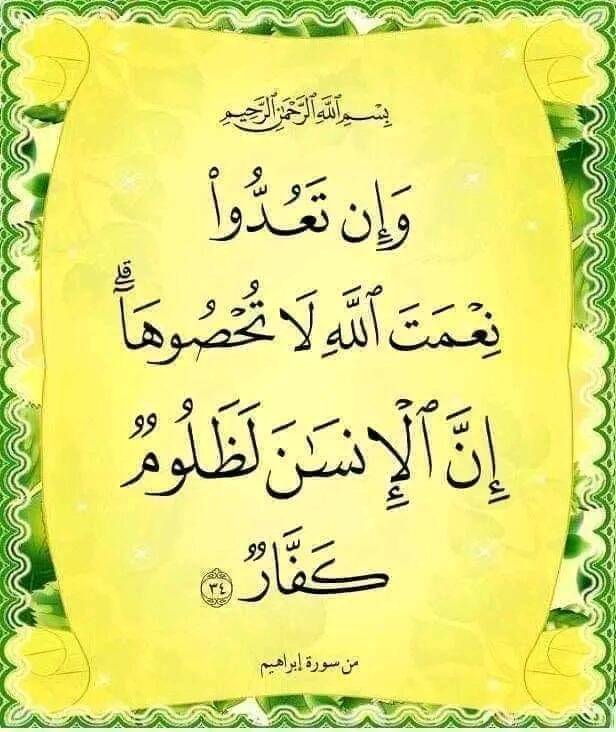 بِسْمِ ٱللَّهِ ٱلرَّحْمَٰنِ ٱلرَّحِيمِ
وَإِن تَعُدُّوا۟
نِعْمَتَ ٱللَّهِ لَا تُحْصُوهَآ ۗ
إِنَّ ٱلْإِنسَٰنَ لَظَلُومٌ
كَفَّارٌ ٣٤
من سورة إبراهيم